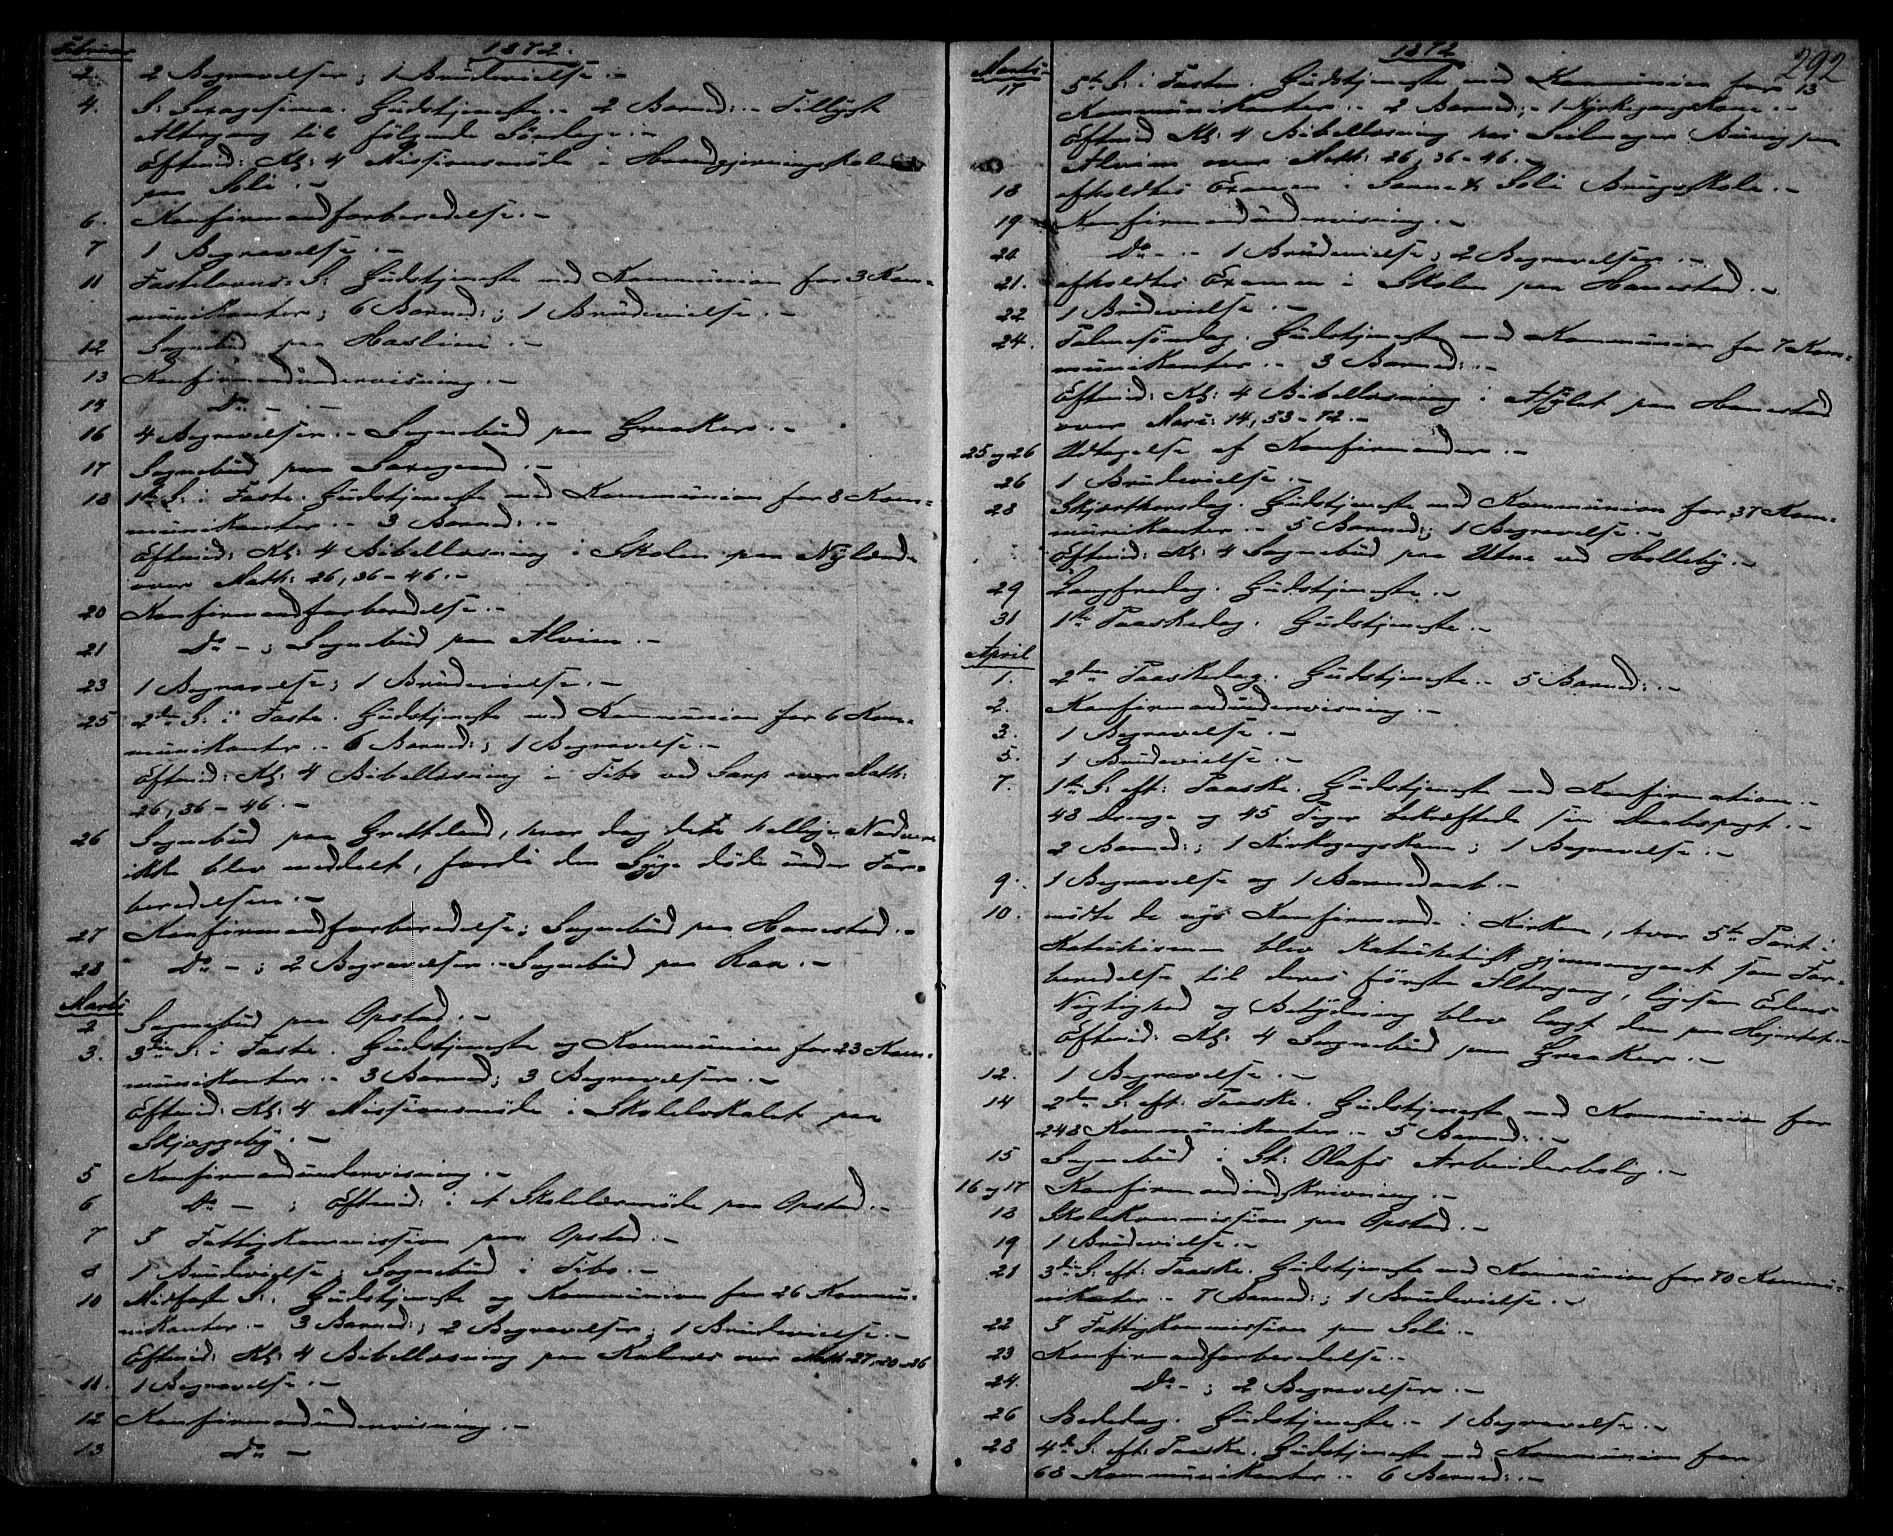 Februar
1872.
2. 2 Begravelser; 1 Brudevielse.-
4. S: Sexagesima. Gudstjeneste.- 2 Barned:.- Tillyst
Altergang til følgende Søndag.-
Eftmid: Kl: 4 Missionsmøde i Haandgjerningsskolen
paa Soli.-
6. Konfirmandforberedelse.-
7 1 Begravelse.-
11 Fastelavns S: Gudstjeneste med Kommunion for 3 Kom-
munikanter; 6 Barned:; 1 Brudevielse.-
12 Sognebud paa Haslum.-
13 Konfirmandundervisning.-
14 Do.-
16 4 Begravelser.- Sognebud paa Greaker.-
17 Sognebud paa
18 1ste S: i Faste. Gudstjeneste med Kommunion for 8 Kom-
munikanter.- 3 Barned:.-
Eftmid: Kl: 4 Bibellæsning i Skolen paa Nylænde
over Math: 26, 36-46.-
20 Konfirmandforberedelse.-
21 Do -; Sognebud paa Alvim.-
23 1 Begravelse; 1 Brudevielse.-
25 2den S: i Faste. Gudstjeneste med Kommunion for 6 Kom-
munikanter.- 6 Barned:; 1 Begravelse.-
Eftmid: Kl: 4 Bibellæsning i Tibo ved Sarp over Math:
26, 36-46.-
26 Sognebud paa Gretteland, hvor dog det hellige Nadvere
ikke blev meddelt, fordi den Syge døde under For-
beredelsen.-
27 Konfirmandforberedelse; Sognebud paa Hannestad.-
28 Do -; 2 Begravelser.- Sognebud paa Raa.-
Marts
2 Sognebud paa Opstad.-
3. 3die S: i Faste. Gudstjeneste og Kommunion for 23 Kom-
munikanter.- 3 Barned; 3 Begravelser.-
Eftmid: Kl: 4 Missionsmøde i Skolelokalet paa
Skjæggeby.-
5 Konfirmandundervisning.-
6 Do - ; Eftmid: i Skolelærermøde paa Opstad.-
7 Fattigkommission paa Opstad.-
8 1 Brudevielse; Sognebud i Tibo.-
10 Midfaste S: Gudstjeneste og Kommunion for 26 Kommu-
nikanter.- 3 Barned:; 2 Begravelser; 1 Brudevielse.-
Eftmid: Kl: 4 Bibellæsning paa Kalnes over Math: 27, 20-26
11. 1 Begravelse.-
12 Konfirmandundervisning.-
13 Do -
292
1872
Marts
17 5te S: i Faste. Gudstjeneste med Kommunion for 13
Kommunikanter.- 2 Barned:.- 1 Kirkegangskone.-
Eftmid Kl: 4 Bibellæsning hos Seilmager paa
Alvim over Math: 26, 36-46.-
18 afholdtes Examen i Sanne & Soli Brugsskole.-
19 Konfirmandundervisning.-
20 Do - 1 Brudevielse; 2 Begravelser.-
21. afholdtes Examen i Skolen paa Hannestad.-
22 1 Brudevielse.-
24. Palmesøndag. Gudstjeneste med Kommunion for 7 Kom-
munikanter.- 3 Barned:.-
Eftmid: Kl: 4 Bibellæsning i Asylet paa Hannestad
over Marc: 14, 53-72.-
25 og 26 Udtagelse af Konfirmander.-
26 1 Brudevielse.-
28 Skjærthorsdag. Gudstjeneste med Kommunion for 37 Kom-
munikanter.- 5 Barned:; 1 Begravelse.-
Eftmid: Kl: 4 Sognebud paa Utne ved Holleby.-
29 Langfredag. Gudstjeneste.-
31 1ste Paaskedag. Gudstjeneste.-
April
1. 2den Paaskedag. Gudstjeneste.- 5 Barned:.-
2. Konfirmandundervisning.-
3. 1 Begravelse.-
5. 1 Brudevielse.-
7. 1ste S: eft: Paaske. Gudstjeneste med Konfirmation.-
48 Drenge og 45 Piger bekræftede sin Daabspagt.-
2 Barned:; 1 Kirkegangskone; 1 Begravelse.-
9. 1 Begravelse og 1 Barnedaab.-
10. mødte de nys Konfirmerede i Kirken, hvor 5te Part i
Katekismen blev katekettisk gjennemgaaet som For-
beredelse til deres første Altergang, ligesom Edens
Vigtighed og Betydning blev lagt dem paa Hjertet.-
Eftmid: Kl: 4 Sognebud paa Greaker.-
12. 1 Begravelse.-
14 2den S: eft: Paaske. Gudstjeneste med Kommunion for
248 Kommunikanter.- 5 Barned:.-
15 Sognebud i St: Olafs Arbeiderbolig.-
16 og 17 Konfirmandindskrivning.-
18 Skolekommission paa Opstad.-
19 1 Brudevielse.-
21 3die S: eft: Paaske. Gudstjeneste med Kommunion for 70 Kommu-
nikanter.- 7 Barned:; 1 Brudevielse.-
22 Fattigkommission paa Soli.-
23 Konfirmandforberedelse.-
24. Do -; 2 Begravelser.-
26 Bededag. Gudstjeneste.- 1 Begravelse.-
28 4de S: eft: Paaske. Gudstjeneste med Kommunion for
68 Kommunikanter.- 6 Barned:.-